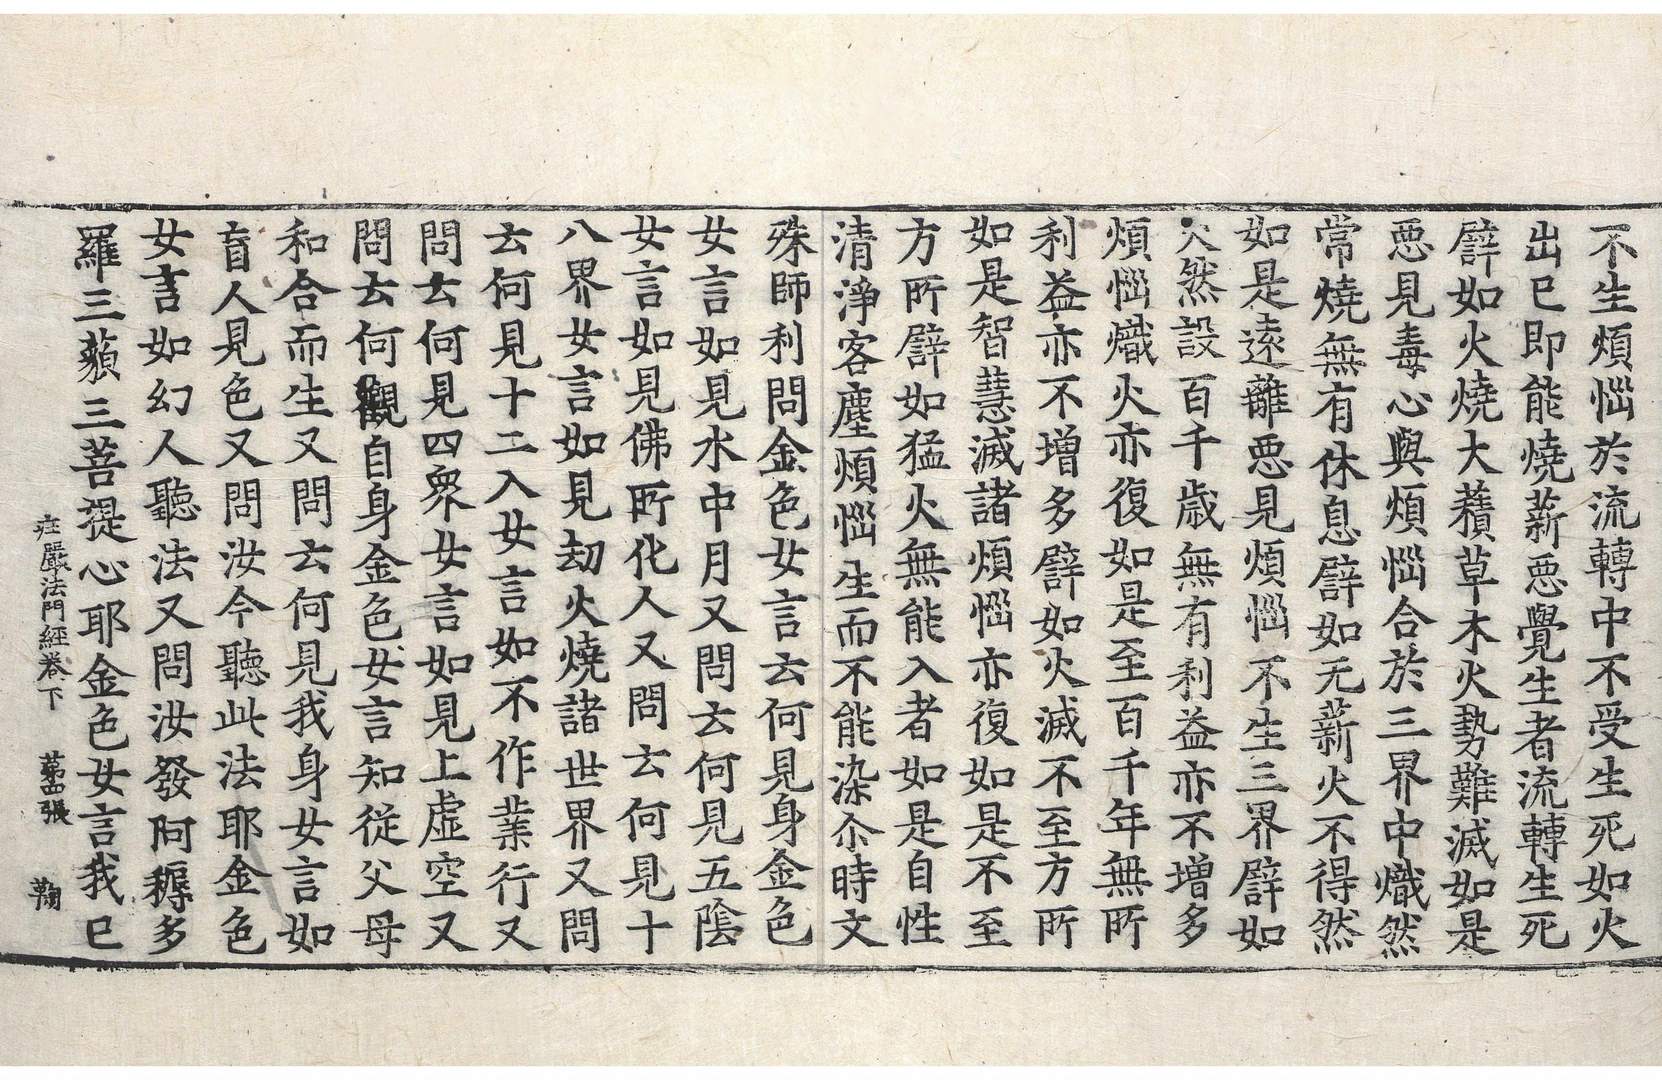 不生煩惱於流轉中不受生死如火
出已即能燒薪惡覺生者流轉生死
譬如火燒大積草木火勢難滅如是
惡見毒心與煩惱合於三界中熾然
常燒無有休息譬如无薪火不得然
如是遠離惡見煩惱不生三界譬如
火然設百千歲無有利益亦不增多
煩惱熾火亦復如是至百千年無所
利益亦不增多譬如火滅不至方所
如是智慧滅諸煩惱亦復如是不至
方所譬如猛火無能入者如是自性
清淨客塵煩惱生而不能染尒時文
殊師利問金色女言云何見身金色
女言如見水中月又問云何見五陰
女言如見佛所化人又問云何見十
八界女言如見劫火燒諸世界又問
云何見十二入女言如不作業行又
問云何見四衆女言如見上虛空又
問云何觀自身金色女言知從父母
和合而生又問云何見我身女言如
盲人見色又問汝今聽此法耶金色
女言如幻人聽法又問汝發阿耨多
羅三藐三菩提心耶金色女言我已
庄嚴法門經卷下 苐四張